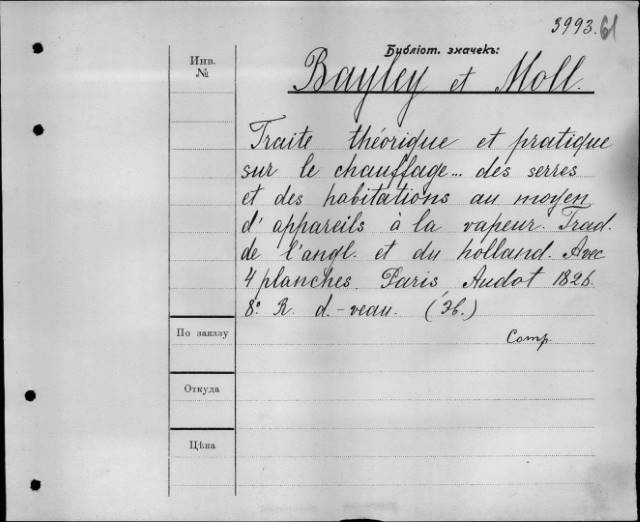 3993.61
Библіот. значекъ:
Инв.
№
Bayley et Moll.
Traite théorique et pratique
sur le chauffage... des serres
et des habitations au moyen
d'appareils à la vapeur. Trad.
de l'angl. et du holland. Avec
4 planches. Paris Audot 1826.
8° R. d.-veau. (Эб.)
По заказу
Comp.
Откуда
Цѣна